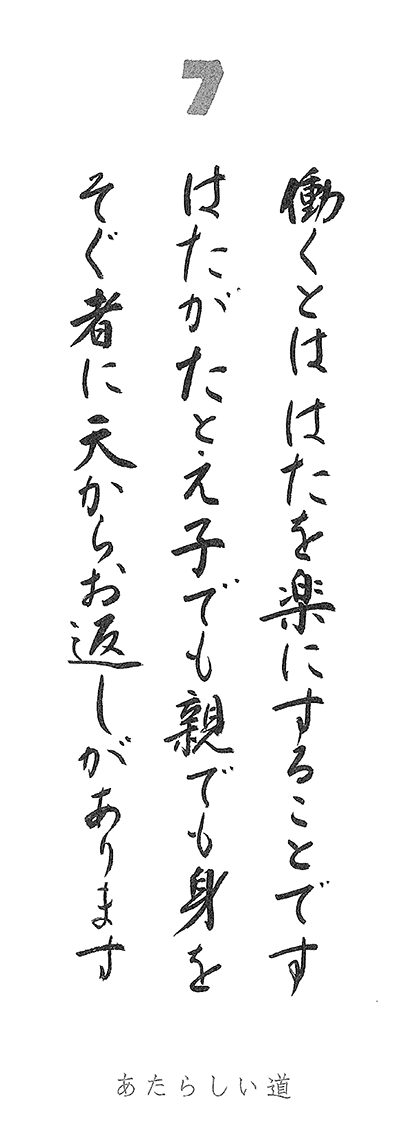 7
働くとは はたを楽にすることです
はたがたとえ子でも親でも身を
そぐ者に天からお返しがあります
あたらしい道